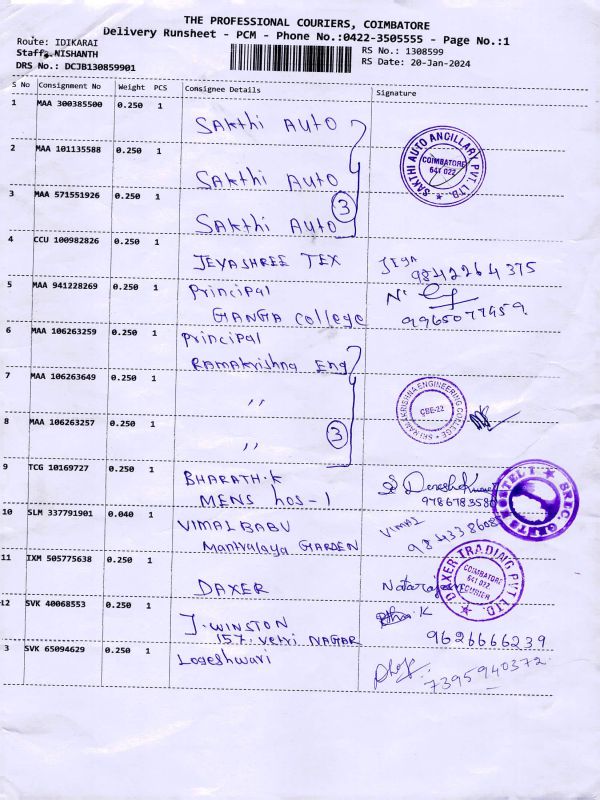 THE PROFESSIONAL COURIERS, COIMBATORE
Delivery Runsheet - PCM - Phone No.:0422-3505555 - Page No.:1
Route: IDIKARAI
Staff: NISHANTH
DRS No.: DCJB130859901
RS No.: 1308599
RS Date: 20-Jan-2024
S No Consignment No Weight PCS Consignee Details Signature
1 MAA 300385500 0.250 1 SAKthi AUTO
SAKTHI AUTO ANCILLARY PVT. LTD. COIMBATORE 641 022
2 MAA 101135588 0.250 1 SAKthi AUTO
3 MAA 571551926 0.250 1 SAKthi AUTO
3
4 CCU 100982826 0.250 1 JEYASHREE TEX
9842264375
5 MAA 941228269 0.250 1 principal
GANGA college
9965077959
6 MAA 106263259 0.250 1 principal
RAMAKrishna Eng
7 MAA 106263649 0.250 1 "
SRI RAMAKRISHNA ENGINEERING COLLEGE CBE-22
8 MAA 106263257 0.250 1 "
3
9 TCG 10169727 0.250 1 BHARATH.K
MENS hos-1
9786783580
SREC GENTS HOSTEL-1
10 SLM 337791901 0.040 1 VIMAL BABU
Mantralaya GARDEN
VIMAL
11 IXM 505775638 0.250 1 DAXER
Natarajan
DAXER TRADING PVT LTD COIMBATORE 641 022 COURIER
12 SVK 40068553 0.250 1 J. WINSTON
157, vetri NAGAR
9626666239
3 SVK 65094629 0.250 1 Logeshwari
7395940372